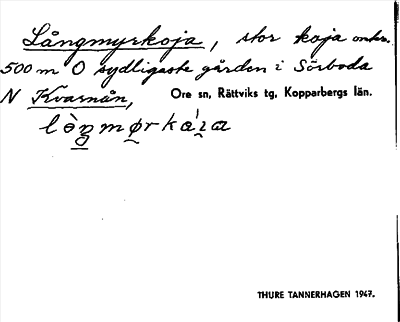 Långmyrkoja, stor koja omkr.
500 m O sydligaste gården i Sörboda
N Kvarnån, Ore sn, Rättviks tg, Kopparbergs län.
THURE TANNERHAGEN 1947.